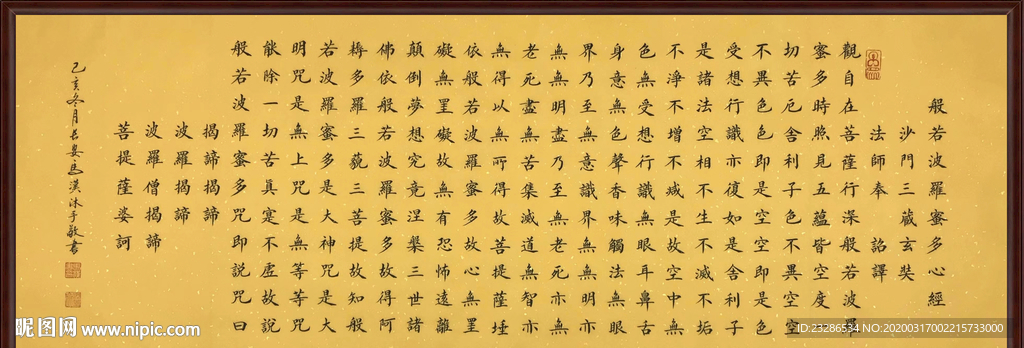 般若波羅蜜多心經
沙門三藏玄奘
法師奉 詔譯
觀自在菩薩行深般若波羅
蜜多時照見五蘊皆空度
切苦厄舍利子色不異空空
不異色色即是空空即是色
受想行識亦復如是舍利子
是諸法空相不生不滅不垢
不淨不增不減是故空中無
色無受想行識無眼耳鼻舌
身意無色聲香味觸法無眼
界乃至無意識界無無明亦
無無明盡乃至無老死亦無
老死盡無苦集滅道無智亦
無得以無所得故菩提薩埵
依般若波羅蜜多故心無罣
礙無罣礙故無有恐怖遠離
顛倒夢想究竟涅槃三世諸
佛依般若波羅蜜多故得阿
耨多羅三藐三菩提故知般
若波羅蜜多是大神咒是大
明咒是無上咒是無等等咒
能除一切苦真寔不虛故說
般若波羅蜜多咒即說咒曰
揭諦揭諦
波羅揭諦
波羅僧揭諦
菩提薩婆訶
己亥冬月長漢沐手敬書
昵图网 www.nipic.com
ID:23286534 NO:20200317002215733000